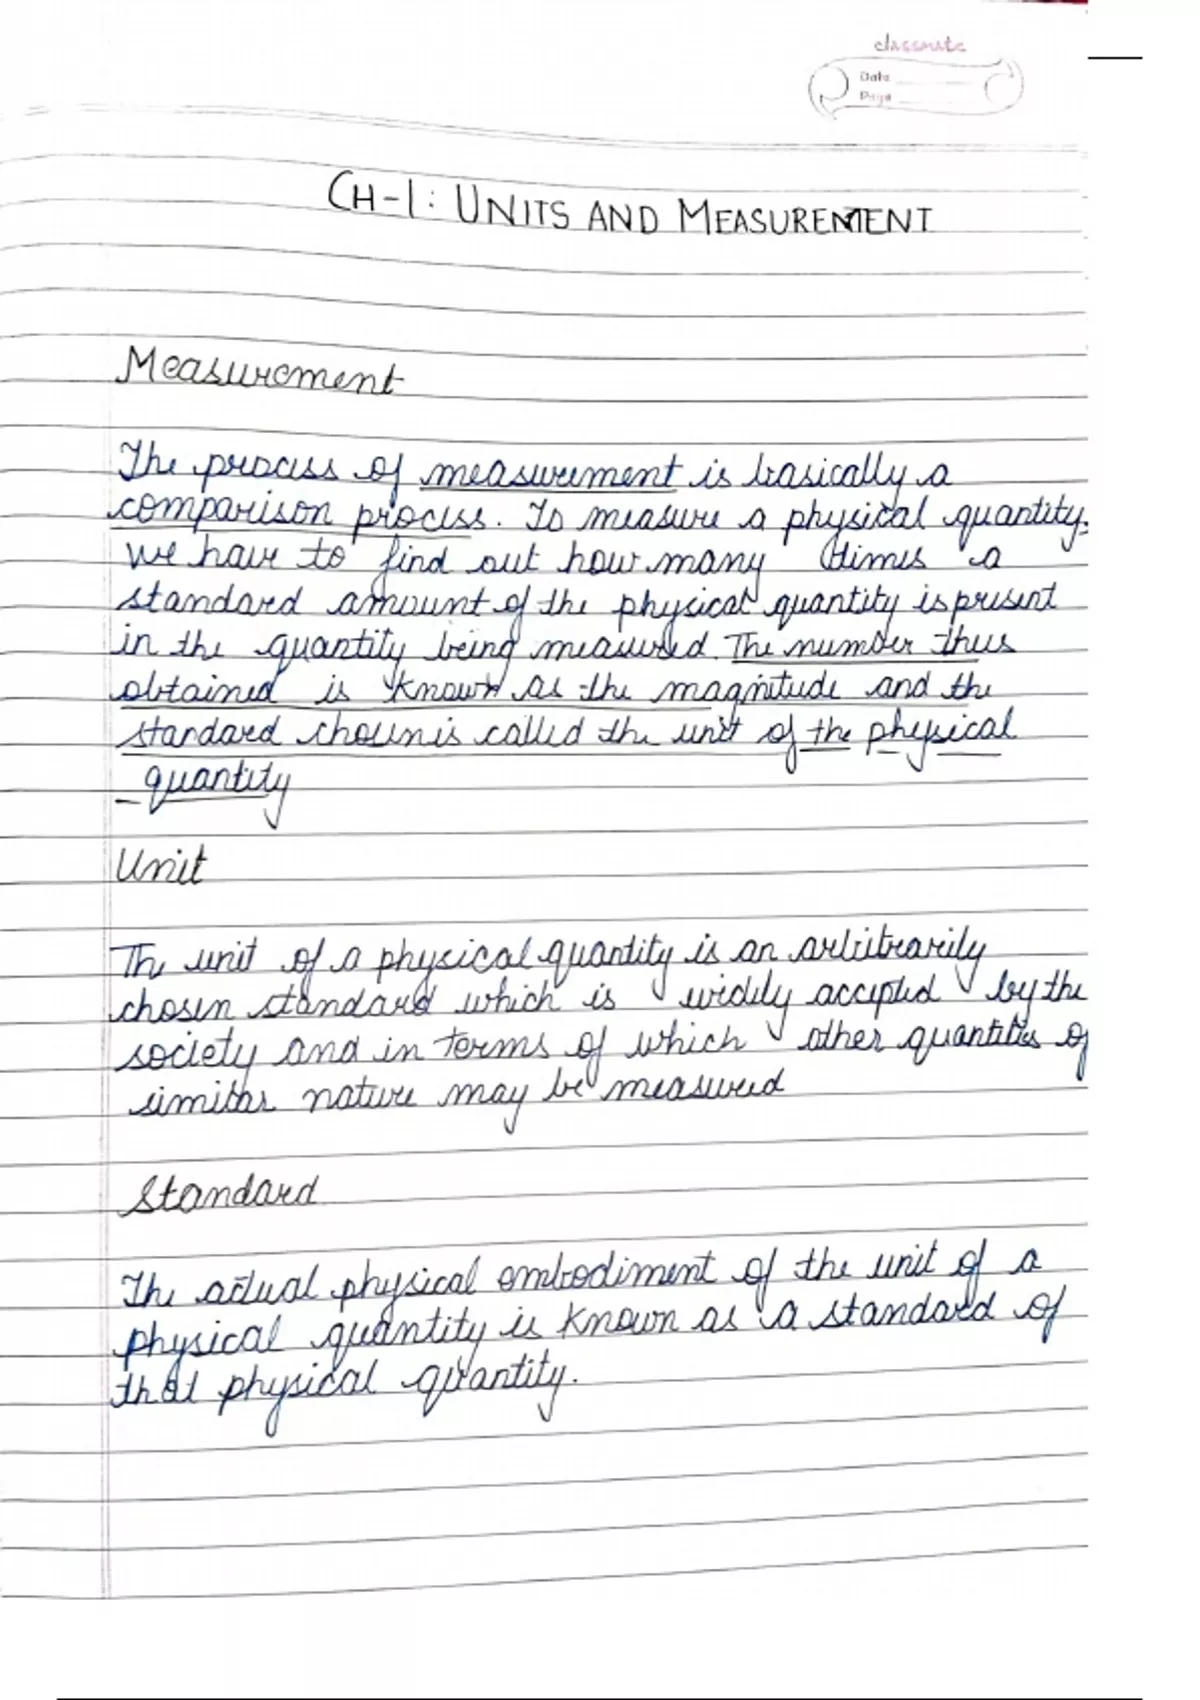 classmate
Date
Page
CH-1: UNITS AND MEASUREMENT
Measurement
The process of measurement is basically a
comparison process. To measure a physical quantity,
we have to find out how many times a
standard amount of the physical quantity is present
in the quantity being measured. The number thus
obtained is known as the magnitude and the
standard chosen is called the unit of the physical
quantity
Unit
The unit of a physical quantity is an arbitrarily
chosen standard which is widely accepted by the
society and in terms of which other quantities of
similar nature may be measured
Standard
The actual physical embodiment of the unit of a
physical quantity is known as a standard of
that physical quantity.